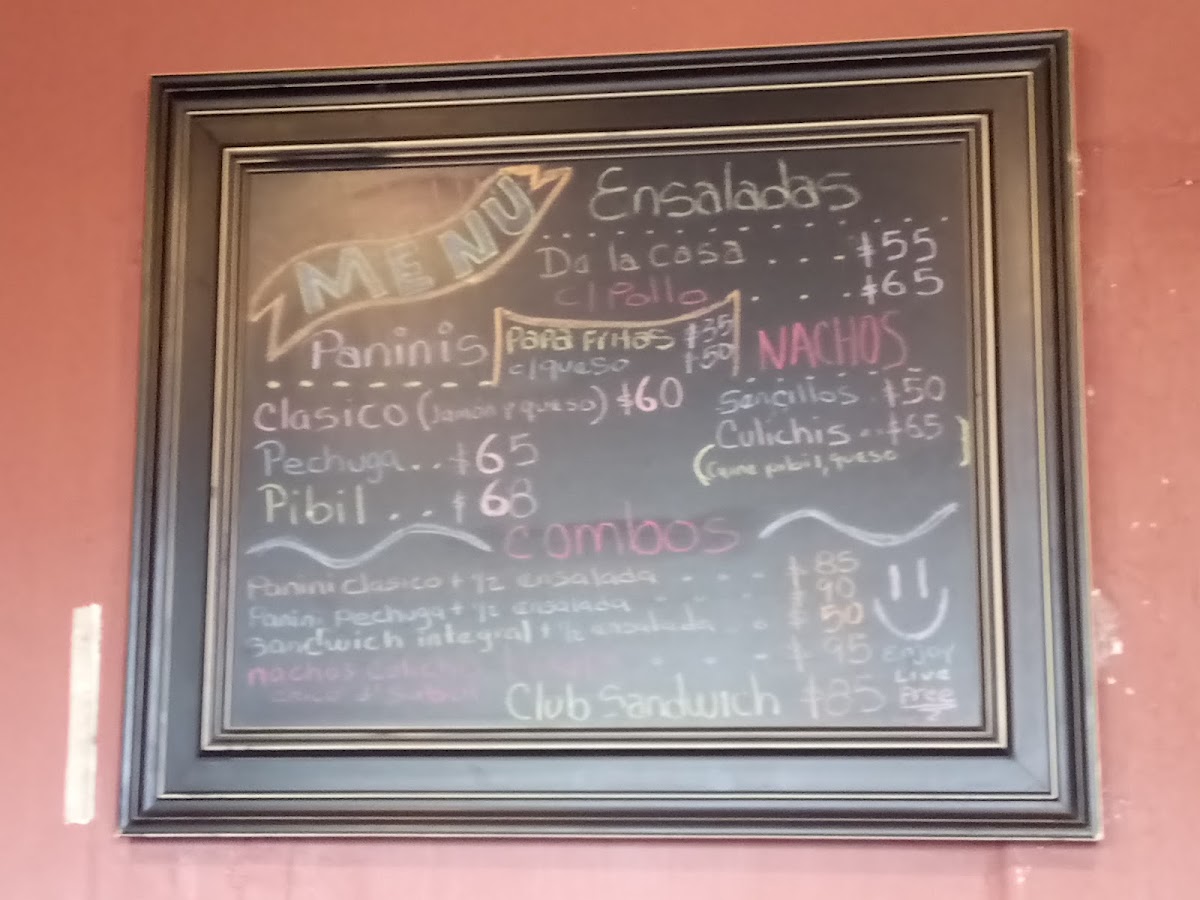 MENÚ
Ensaladas
De la casa . . . $55
c/Pollo . . . $65
Paninis
Papa Fritas $35
c/queso $50
NACHOS
Sencillos . $50
Culichis .. $65
(Carne pibil, queso)
Clasico (Jamón y queso) $60
Pechuga .. $65
Pibil . . . $68
Combos
Panini clasico + 1/2 ensalada - - - $85
Panini Pechuga + 1/2 ensalada $90
Sandwich integral + 1/2 ensalada . . $50
nachos - - - $95
Club Sandwich $85
Enjoy
Live
Free